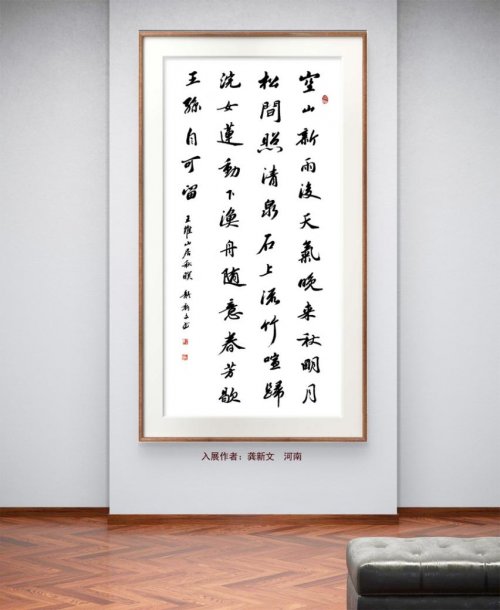 空山新雨後天氣晚来秋明月
松間照清泉石上流竹喧歸
浣女蓮動下漁舟随意春芳歇
王孫自可留 王維山居秋暝 龔新文书
入展作者：龚新文 河南